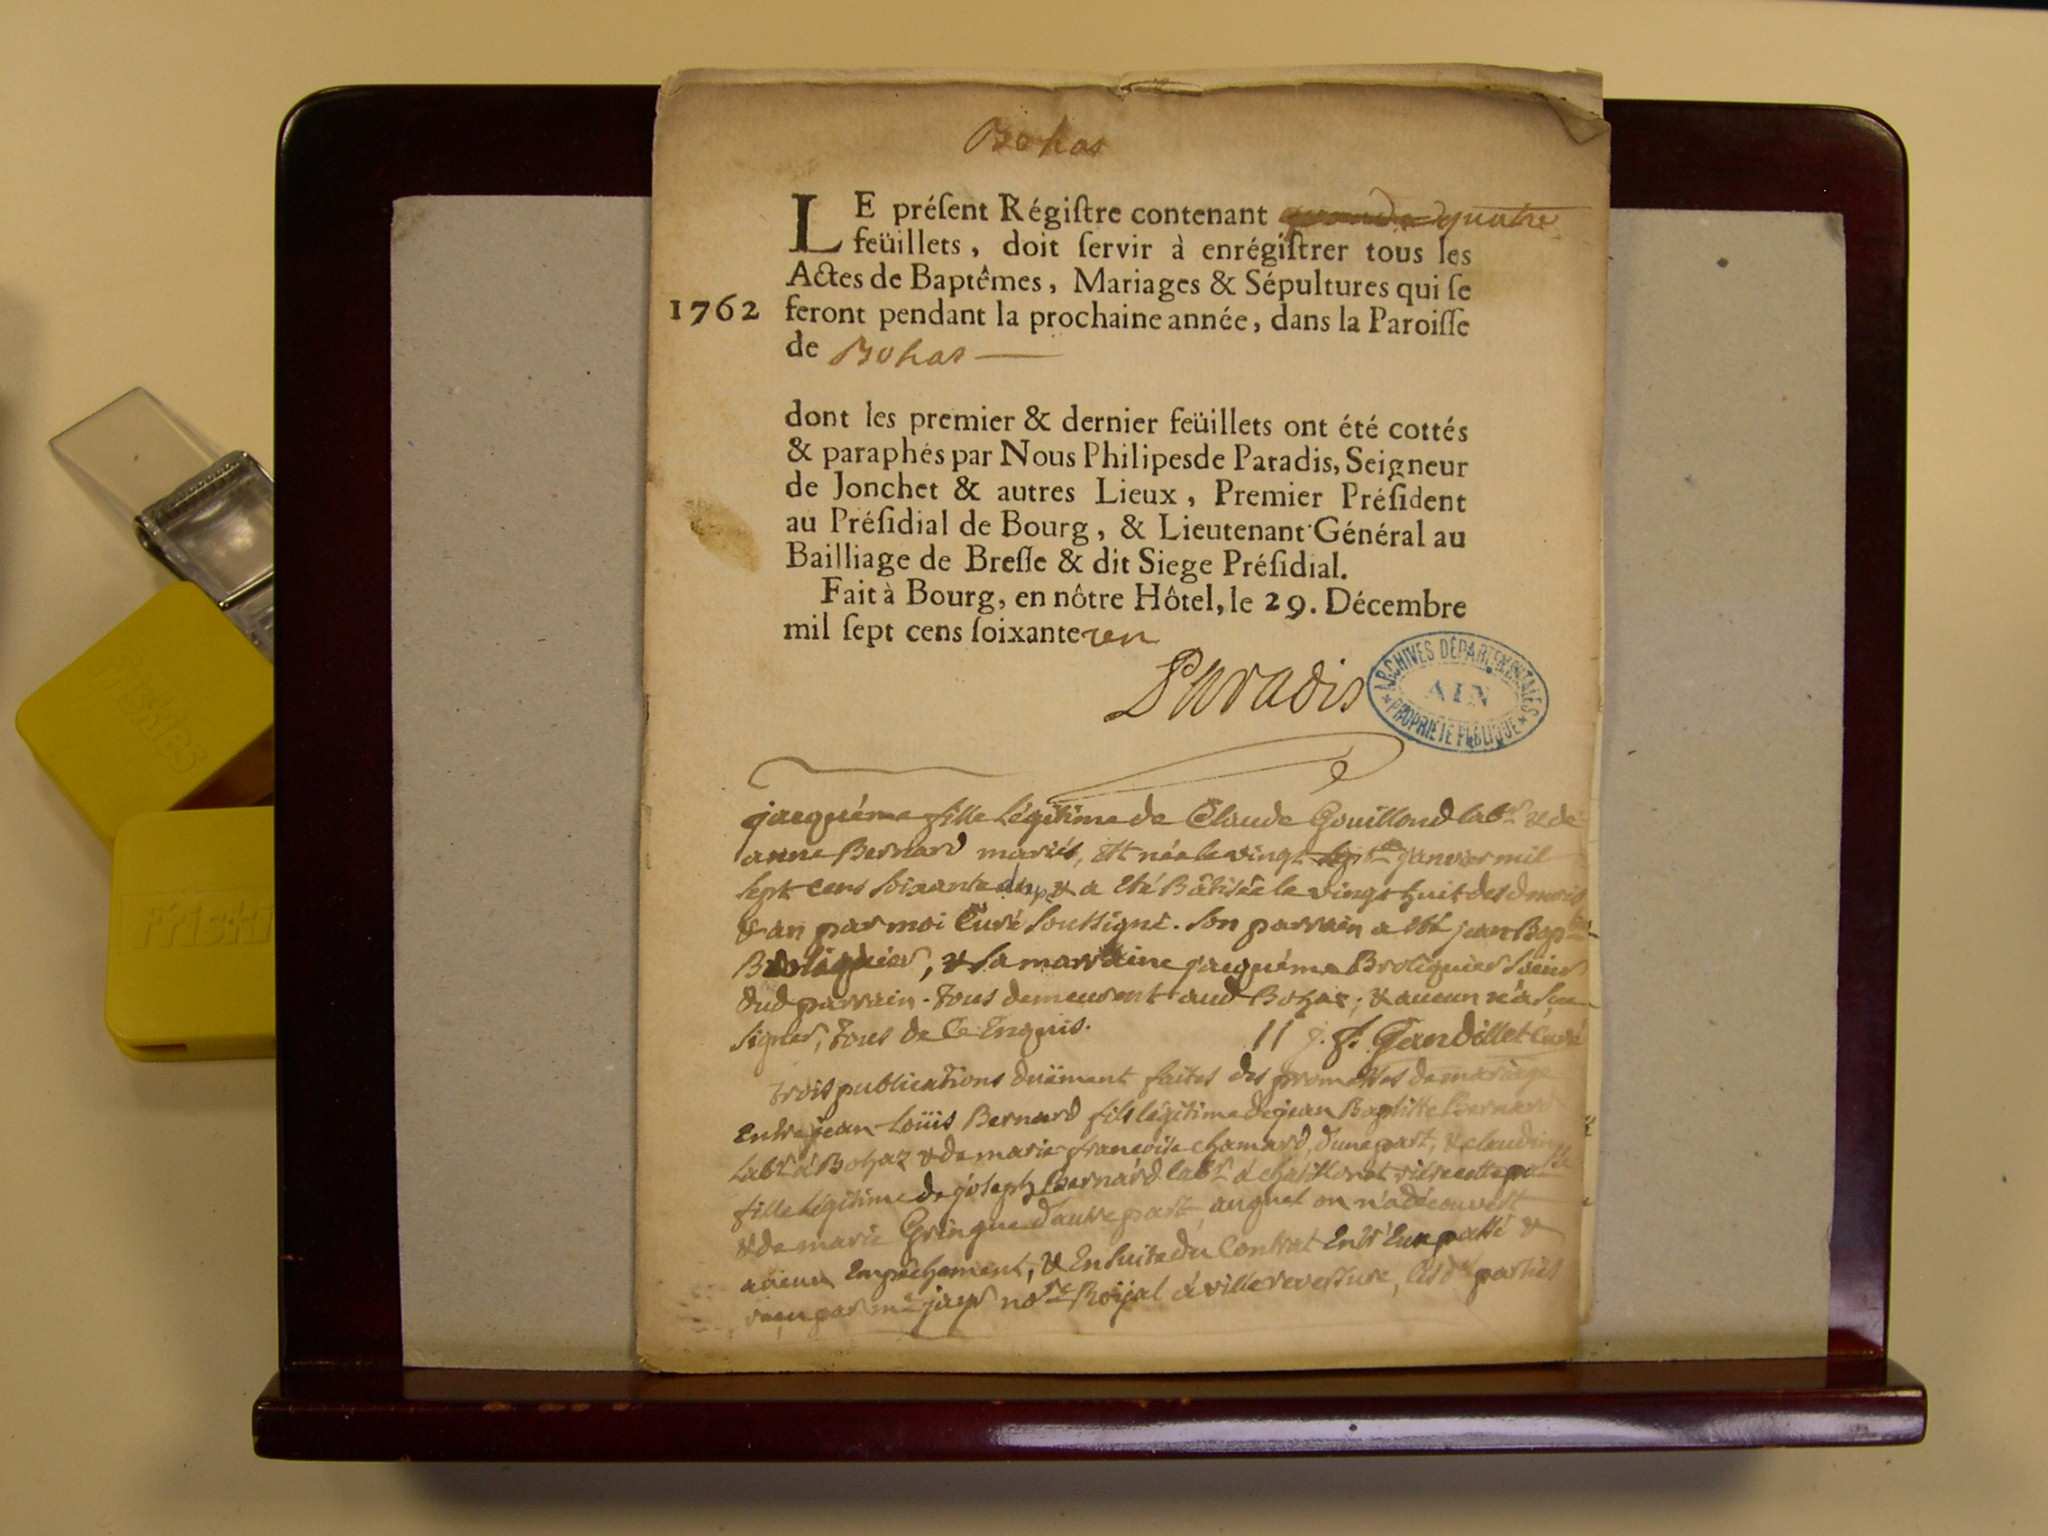 Bohas
LE préſent Régiſtre contenant quatre
feüillets, doit ſervir à enrégiſtrer tous les
Actes de Baptêmes, Mariages & Sépultures qui ſe
1762 feront pendant la prochaine année, dans la Paroiſſe
de Bohas
dont les premier & dernier feüillets ont été cottés
& paraphés par Nous Philipes de Paradis, Seigneur
de Jonchet & autres Lieux, Premier Préſident
au Préſidial de Bourg, & Lieutenant Général au
Bailliage de Breſſe & dit Siege Préſidial.
Fait à Bourg, en nôtre Hôtel, le 29. Décembre
mil ſept cens ſoixante un
Paradis
ARCHIVES DÉPARTEMENTALES
AIN
PROPRIÉTÉ PUBLIQUE
jacquéme fille légitime de Claude Gouillond labr & de
anne Bernard mariés, est née le vingt sept janvier mil
sept cens soixante deux & a été Bâtisée le vingt huit des d mois
& an par moi Curé soussigné. son parrain a été jean Bapte
Broliquier, & sa marraine jacquéme Broliquier soeur
dud parrain. tous demeurent aud Bohas; & aucun n'a sçu
signer, tous de ce enquis. J. F. Gandillet Curé
trois publications duëment faites des promesses de mariage
Entre jean Loüis Bernard fils légitime de jean Baptiste Bernard
labr à Bohaz & de marie françoise chamard, d'une part, & claudine
fille légitime de joseph Bernard labr à châtillonet rière cette
& de marie Gringue d'autre part, auquel on n'a découvert
aucun Empêchement, & Ensuite du Contrat Entr'Eux passé &
reçu par me jayr nore Roÿal à villereversure, les des parties
Friskies
Friski